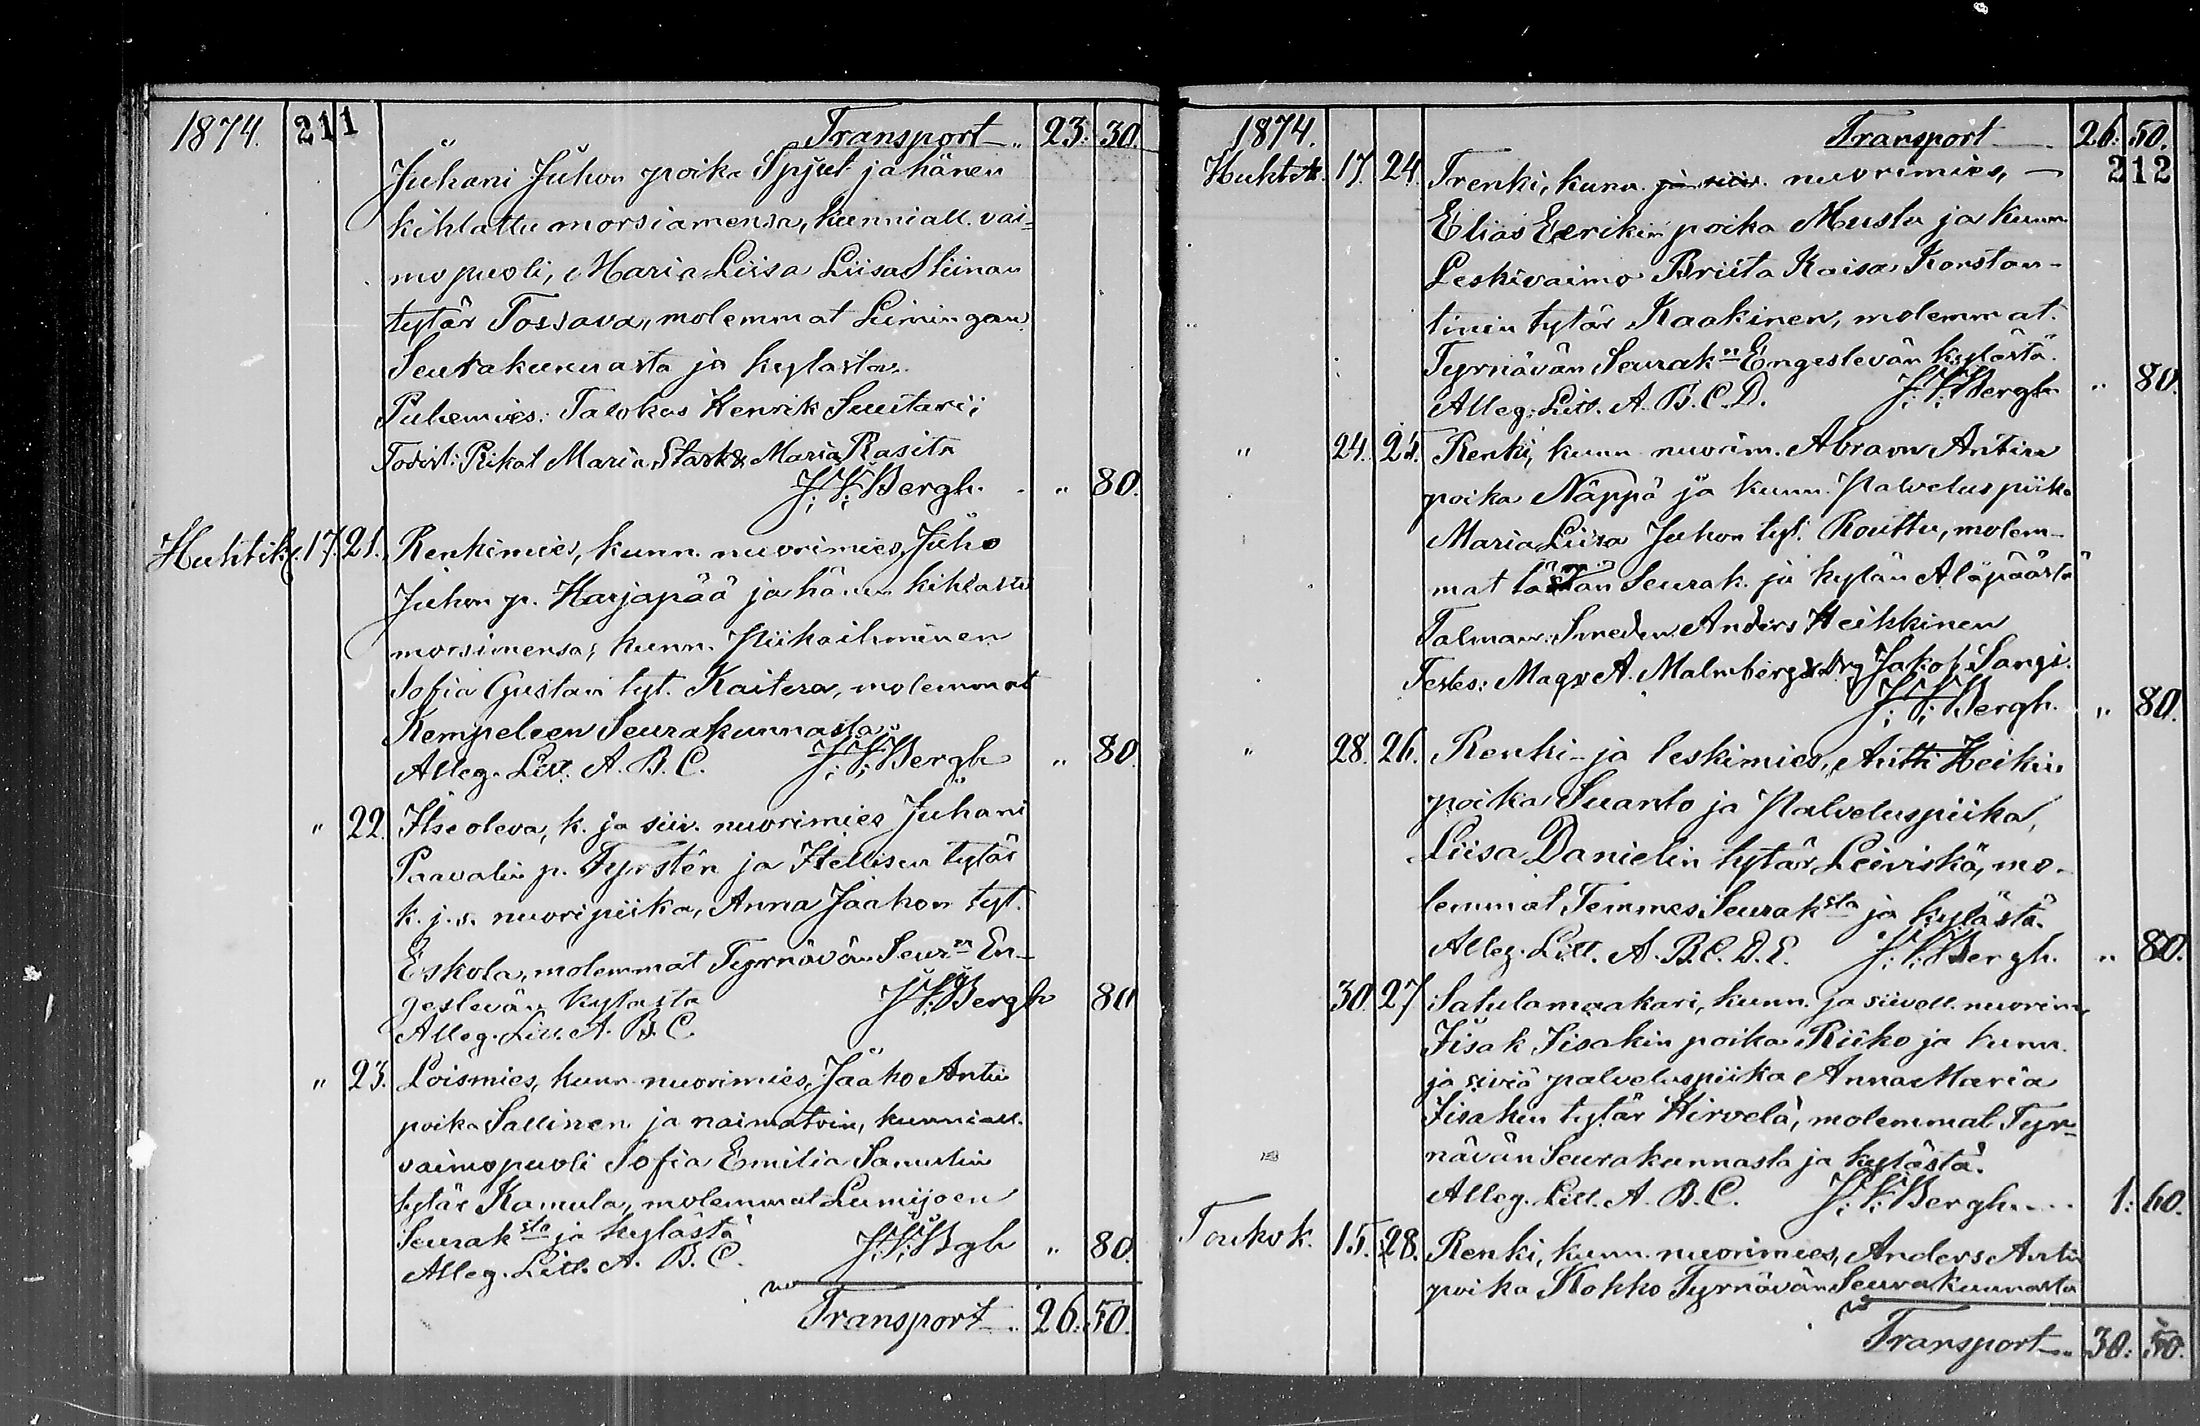 1874. 211 Transport „ 23: 30.
Juhani Juhon poika Spjut ja hänen
kihlattu morsiamensa, kunniall. vai=
mopuoli, Maria Liisa Liisa Stiinan
tytär Tossava, molemmat Limingan
Seurakunnasta ja kylästä.
Puhemies: Talokas Henrik Suutari;
Todist: Piikat Maria Stark & Maria Rasita
J. V. Bergh. „ 80.
Huhtik. 17. 21. Renkimies, kunn. nuorimies, Juho
Juhon p. Karjapää ja hänen kihlattu
morsimensa, kunn. Piikaihminen
Sofia Gustavi tyt. Kaitera, molemmat
Kempeleen Seurakunnasta.
Alleg. Litt. A. B. C. J. V. Bergh „ 80.
„ 22. Itseoleva, k. ja siiv. nuorimies Juhani
Paavalin p. Tyrstén ja Itellisen tytär
k. j. s. nuoripiika, Anna Jaakon tyt.
Eskola, molemmat Tyrnävän Seur:n En-
geslevän kylästä J. V. Bergh 80
Alleg. Litt. A. B. C.
„ 23. Loismies, kunn nuorimies, Jaako Antin
poika Sallinen ja naimatoin, kunniall.
vaimopuoli Sofia Emilia Samulin
tytär Kamula, molemmat Lumijoen
Seurak:sta ja kylästä J. V. Bgh „ 80.
Alleg. Litt. A. B. C.
Transport 26: 50.
1874. Transport 26: 50.
Huhtik. 17. 24. Trenki, kunn. ja siiv. nuorimies, — 212
Elias Eerikin poika Musta ja kunn.
Leskivaimo Briita Kaisa Konstan-
tinin tytär Kaakinen, molemmat
Tyrnävän Seurak:n Engeslevän kylästä.
Alleg. Litt. A. B. C. D. J. V. Bergh „ 80.
„ 24. 25. Renki, kunn nuorim. Abram Antin
poika Näppä ja kunn. Palveluspiika
Maria Liisa Juhon tyt. Routtu, molem-
mat tämän Seurak. ja kylän Alapäästä
Talman: Smeden Anders Heikkinen
Testes: Mag. A. Malmberg & Drg Jakob Sangi.
J. V. Bergh. „ 80.
„ 28. 26. Renki- ja leskimies, Antti Heikin
poika Suanto ja Palveluspiika,
Liisa Danielin tytär Leiviskä, mo-
lemmat Temmes Seurak:sta ja kylästä.
Alleg. Litt. A. B. C. D. E. J. V. Bergh. „ 80.
30. 27 Satulamaakari, kunn. ja siivell. nuorim.
Iisak Iisakin poika Riiko ja kunn.
ja siviä palveluspiika Anna Maria
Iisakin tytär Hirvelä, molemmat Tyr=
nävän Seurakunnasta ja kylästä.
Alleg. Litt. A. B. C. J. V. Bergh. 1: 60.
Toukok. 15. 28. Renki, kunn. nuorimies, Anders Antin
poika Kokko Tyrnävän Seurakunnasta
Transport 30: 50.